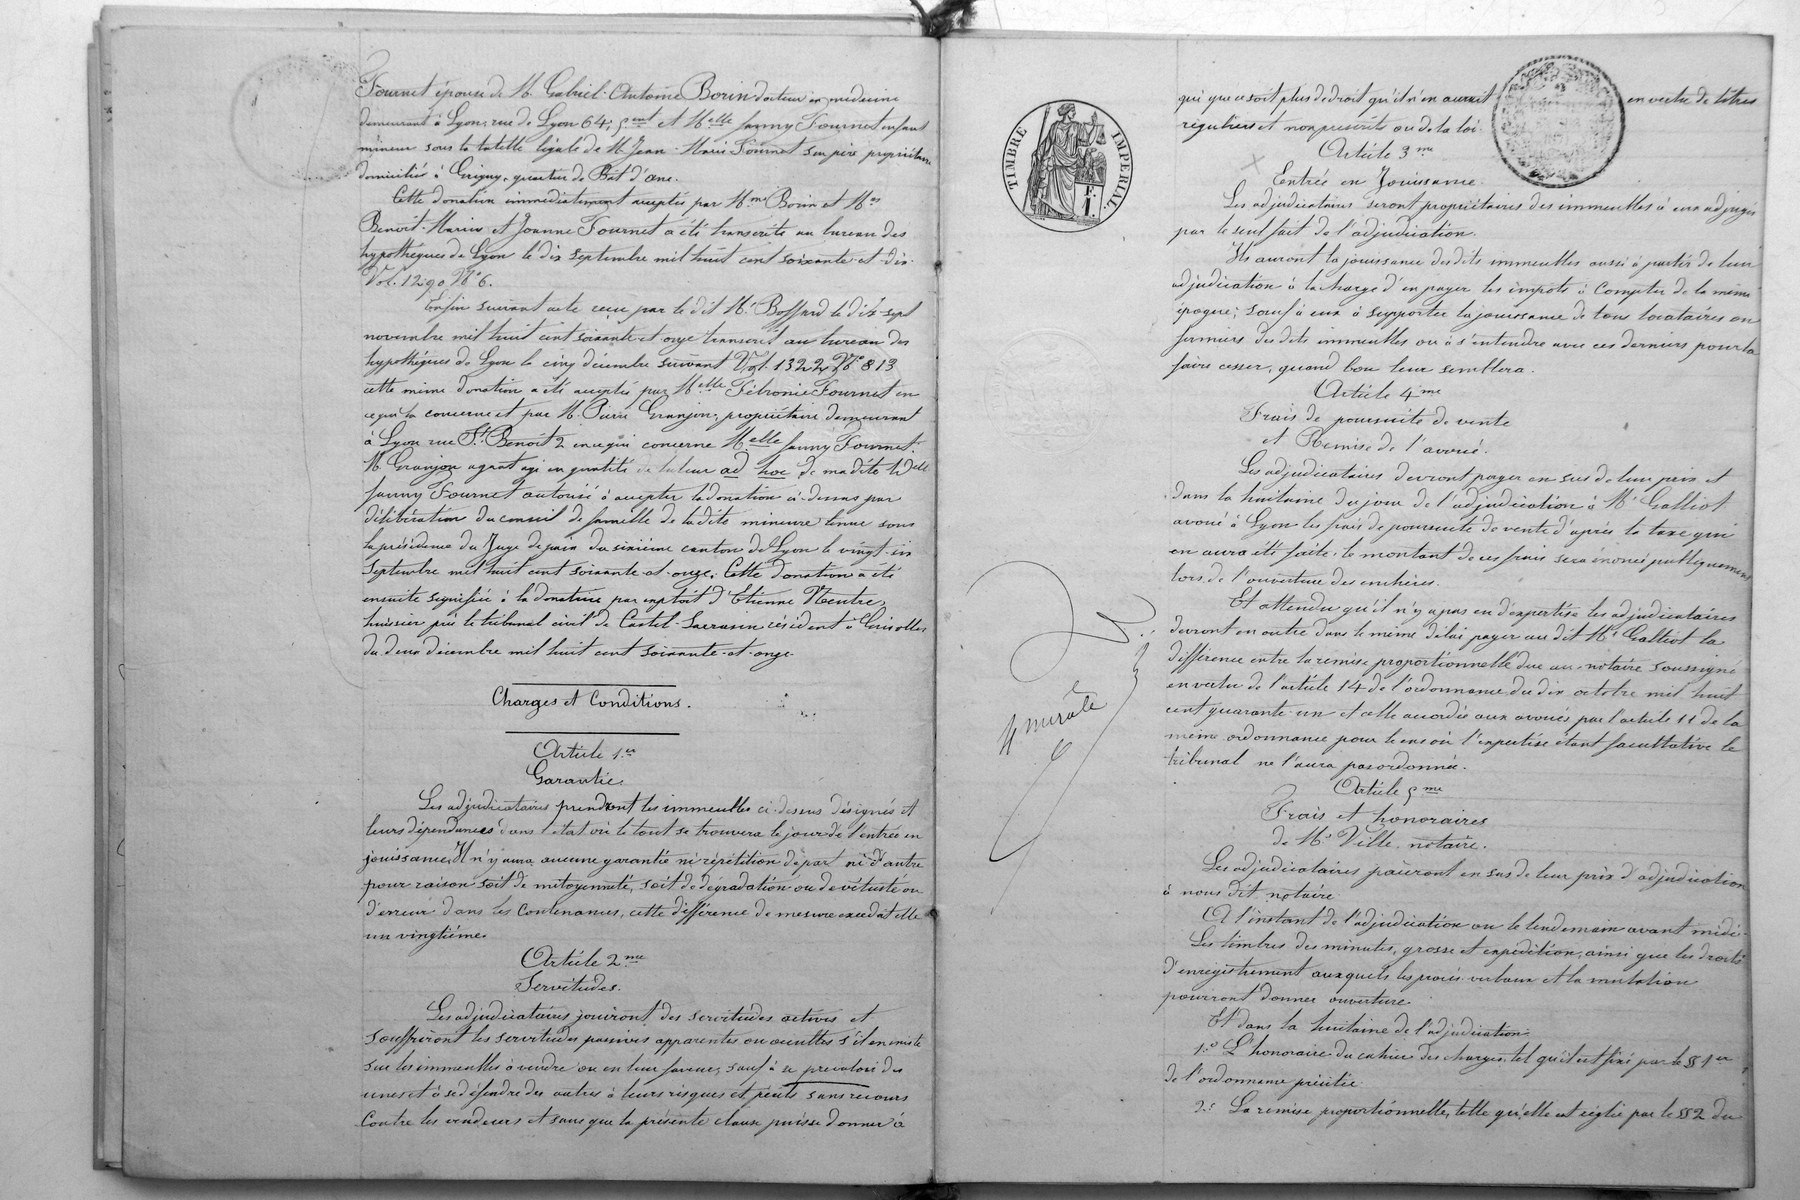 Fournet épouse de M. Gabriel-Antoine Borin docteur en médecine
demeurant à Lyon, rue de Lyon 64; 5ent et Melle fanny Fournet enfant
mineur sous la tutelle légale de M. Jean-Marie Fournet son père propriétaire
domiciliés à Grigny, quartier de Bât d'âne.
Cette donation immédiatement acceptée par Mme Borin et Mrs
Benoit-Marius et Joanne Fournet a été transcrite au bureau des
hypothèques de Lyon le dix septembre mil huit cent soixante-et-dix.
Vol. 1290 No 6.
Enfin suivant acte reçu par le dit Me Boffard le dix-sept
novembre mil huit cent soixante-et-onze transcrit au bureau des
hypothèques de Lyon le cinq décembre suivant Vol. 1322 No 813
cette même donation a été acceptée par Melle Fébronie Fournet en
ce qui la concerne et par M. Pierre Granjon, propriétaire demeurant
à Lyon rue St Benoit 2 en ce qui concerne Melle fanny Fournet.
M. Granjon ayant agi en qualité de tuteur ad hoc de ma dite delle
fanny Fournet autorisé à accepter la donation ci-dessus par
délibération du conseil de famille de la dite mineure tenue sous
la présidence du Juge de paix du sixième canton de Lyon le vingt-six
septembre mil huit cent soixante-et-onze. Cette donation a été
ensuite signifiée à la donatrice par exploit d'Etienne Neutre,
huissier près le tribunal civil de Castel-Sarrasin résident à Grisolles
du deux décembre mil huit cent soixante-et-onze.
Charges et Conditions.
Article 1er
Garantie.
Les adjudicataires prendront les immeubles ci-dessus désignés et
leurs dépendances dans l'état où le tout se trouvera le jour de l'entrée en
jouissance. Il n'y aura aucune garantie ni répétition de part ni d'autre
pour raison soit de mitoyenneté, soit de dégradation ou de vétusté ou
d'erreur dans les contenances, cette différence de mesure excedât elle
un vingtième.
Article 2me
Servitudes.
Les adjudicataires jouiront des servitudes actives et
souffriront les servitudes passives apparentes ou occultes s'il en existe
sur les immeubles à vendre ou en leur faveur, sauf à se prévaloir des
unes et à se défendre des autres à leurs risques et périls sans recours
contre les vendeurs et sans que la présente clause puisse donner à
TIMBRE IMPERIAL
qui que ce soit plus de droit qu'il n'en aurait en vertu de titres
réguliers et non prescrits ou de la loi.
Article 3me
Entrée en Jouissance.
Les adjudicataires seront propriétaires des immeubles à eux adjugés
par le seul fait de l'adjudication.
Ils auront la jouissance des dits immeubles aussi à partir de leur
adjudication à la charge d'en payer les impôts à compter de la même
époque; sauf à eux à supporter la jouissance de tous locataires ou
fermiers des dits immeubles ou à s'entendre avec ces derniers pour la
faire cesser, quand bon leur semblera.
Article 4me
Frais de poursuite de vente
et Remise de l'avoué.
Les adjudicataires devront payer en sus de leur prix et
dans la huitaine du jour de l'adjudication à Me Galliot
avoué à Lyon les frais de poursuite de vente d'après la taxe qui
en aura été faite; le montant de ces frais sera énoncé publiquement
lors de l'ouverture des enchères.
Et attendu qu'il n'y a pas eu d'expertise les adjudicataires
devront en outre dans le même délai payer au dit Me Galliot la
différence entre la remise proportionnelle due au notaire soussigné
en vertu de l'article 14 de l'ordonnance du dix octobre mil huit
cent quarante-un et celle accordée aux avoués par l'article 11 de la
même ordonnance pour le cas où l'expertise étant facultative le
tribunal ne l'aura pas ordonnée.
Article 5me
Frais et honoraires
de Me Ville, notaire.
Les adjudicataires paieront en sus de leur prix d'adjudication
à nous dit notaire
A l'instant de l'adjudication ou le lendemain avant midi.
Les timbres des minutes, grosse et expédition, ainsi que les droits
d'enregistrement auxquels les procès-verbaux et la mutation
pourront donner ouverture.
Et dans la huitaine de l'adjudication.
1o L'honoraire du cahier des charges, tel qu'il est fixé par le § 1er
de l'ordonnance précitée
2o La remise proportionnelle, telle qu'elle est réglée par le § 2 du